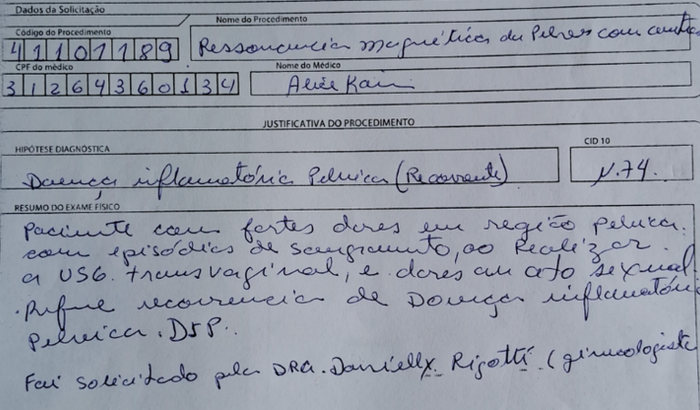 Dados da Solicitação
Código do Procedimento
Nome do Procedimento
41107189
Ressonancia magnética da Pelves com
CPF do médico
Nome do Médico
31264360134
Alice Kain
JUSTIFICATIVA DO PROCEDIMENTO
HIPÓTESE DIAGNÓSTICA
CID 10
Doença inflamatória Pelvica (Recorrente)
N.74.
RESUMO DO EXAME FÍSICO
Paciente com fortes dores em região pelvica.
com episódios de sangramento, ao Realizar
a USG. transvaginal, e dores an ato sexual
. Refere recorrencia de Doença inflamatóri
Pelvica. DIP.
Foi solicitado pela DRA. Danielly. Rigotti (ginecologista